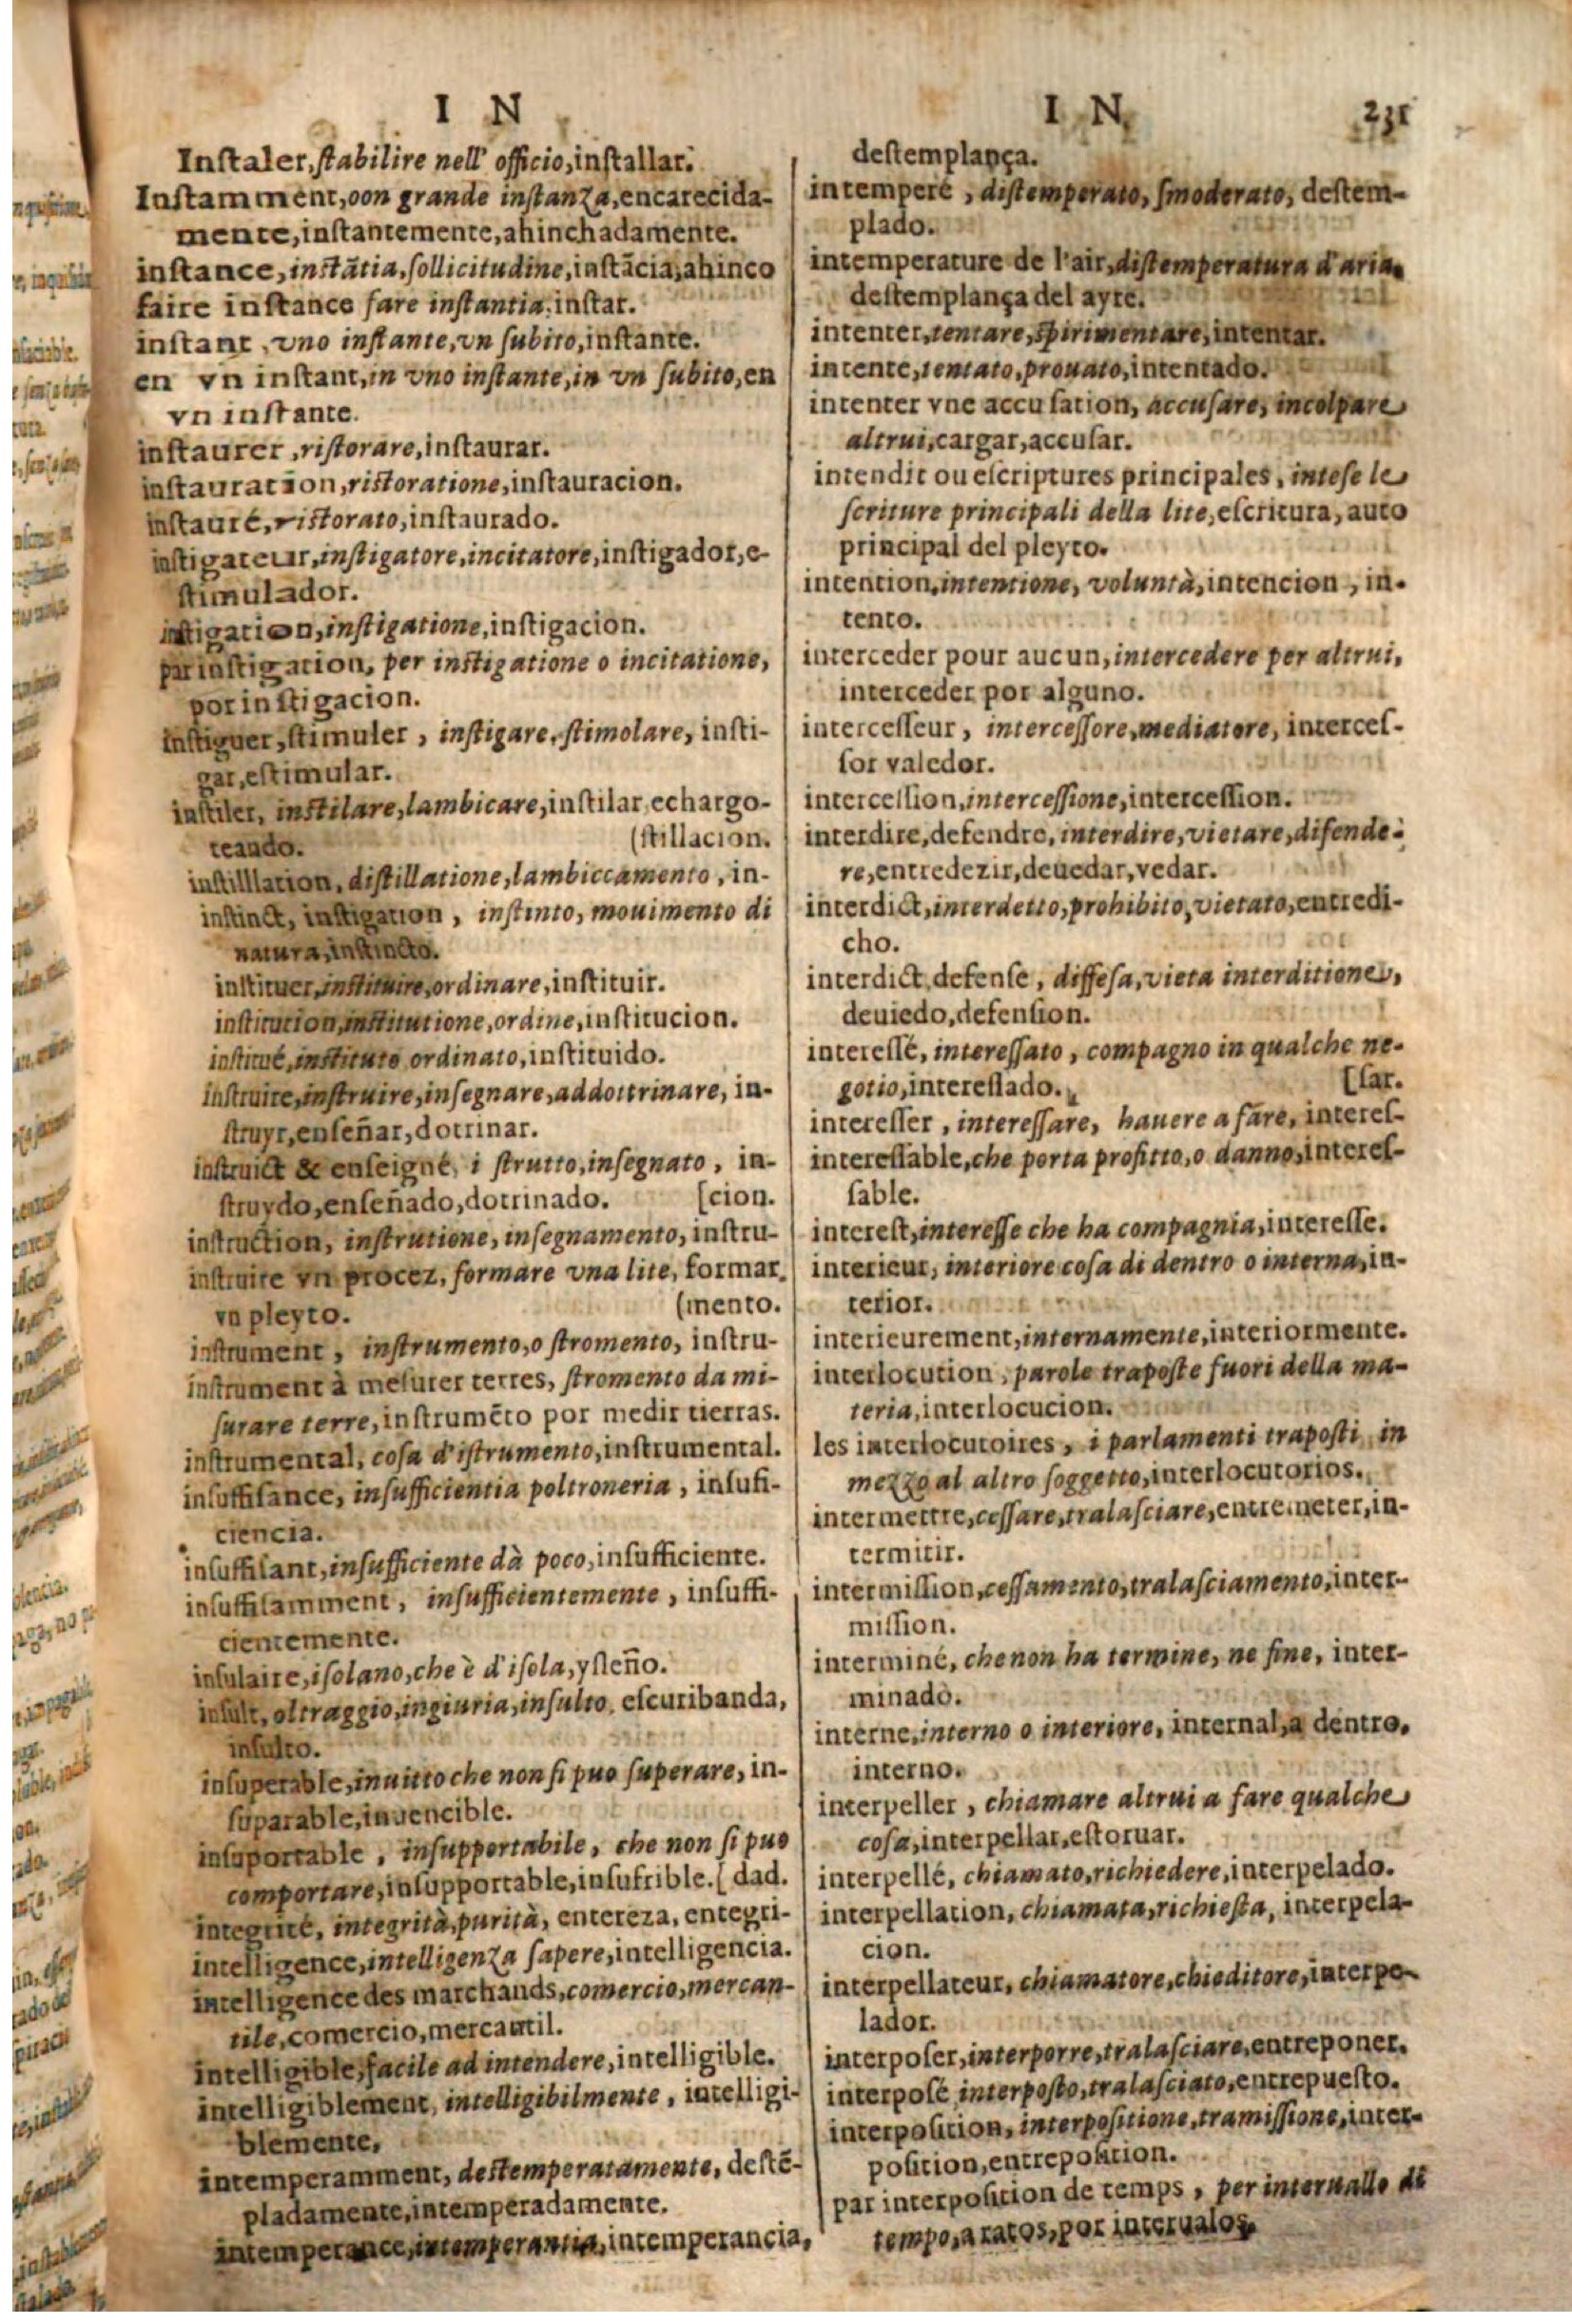 I N
Instaler, stabilire nell' officio, installar.
Instamment, oon grande instanza, encarecida-
mente, instantemente, ahinchadamente.
instance, instātia, sollicitudine, instācia, ahinco
faire instance fare instantia, instar.
instant, vno instante, vn subito, instante.
en vn instant, in vno instante, in vn subito, en
vn instante.
instaurer, ristorare, instaurar.
instauration, ristoratione, instauracion.
instauré, ristorato, instaurado.
instigateur, instigatore, incitatore, instigador, e-
stimulador.
instigation, instigatione, instigacion.
par instigation, per instigatione o incitatione,
por instigacion.
instiguer, stimuler, instigare, stimolare, insti-
gar, estimular.
instiler, instilare, lambicare, instilar, echargo-
teando. (stillacion.
instilllation, distillatione, lambiccamento, in-
instinct, instigation, instinto, mouimento di
natura, instincto.
instituer, instituire, ordinare, instituir.
institution, institutione, ordine, institucion.
institué, instituto ordinato, instituido.
instruire, instruire, insegnare, addottrinare, in-
struyr, enseñar, dotrinar.
instruict & enseigné, i strutto, insegnato, in-
struydo, enseñado, dotrinado. [cion.
instruction, instrutione, insegnamento, instru-
instruire vn procez, formare vna lite, formar
vn pleyto. (mento.
instrument, instrumento, o stromento, instru-
instrument à mesurer terres, stromento da mi-
surare terre, instrumēto por medir tierras.
instrumental, cosa d'istrumento, instrumental.
insuffisance, insufficientia poltroneria, insufi-
ciencia.
insuffisant, insufficiente dà poco, insufficiente.
insuffisamment, insufficientemente, insuffi-
cientemente.
insulaire, isolano, che è d'isola, ysleño.
insult, oltraggio, ingiuria, insulto, escuribanda,
insulto.
insuperable, inuitto che non si puo superare, in-
suparable, inuencible.
insuportable, insupportabile, che non si puo
comportare, insupportable, insufrible. [dad.
integrité, integrità, purità, entereza, entegri-
intelligence, intelligenza sapere, intelligencia.
intelligence des marchands, comercio, mercan-
tile, comercio, mercantil.
intelligible, facile ad intendere, intelligible.
intelligiblement, intelligibilmente, intelligi-
blemente,
intemperamment, destemperatamente, destē-
pladamente, intemperadamente.
intemperance, intemperantia, intemperancia,
I N. 231
destemplança.
intemperé, distemperato, smoderato, destem-
plado.
intemperature de l'air, distemperatura d'aria,
destemplança del ayre.
intenter, tentare, spirimentare, intentar.
intente, tentato, prouato, intentado.
intenter vne accusation, accusare, incolpare
altrui, cargar, accusar.
intendit ou escriptures principales, intese le
scriture principali della lite, escritura, auto
principal del pleyto.
intention, intentione, voluntà, intencion, in-
tento.
interceder pour aucun, intercedere per altrui,
interceder por alguno.
intercesseur, intercessore, mediatore, interces-
sor valedor.
intercession, intercessione, intercession.
interdire, defendre, interdire, vietare, difende-
re, entredezir, deuedar, vedar.
interdict, interdetto, prohibito, vietato, entredi-
cho.
interdict, defense, diffesa, vieta interditione,
deuiedo, defension.
interessé, interessato, compagno in qualche ne-
gotio, interessado. [sar.
interesser, interessare, hauere a fare, interes-
interessable, che porta profitto, o danno, interes-
sable.
interest, interesse che ha compagnia, interesse.
interieur, interiore cosa di dentro o interna, in-
terior.
interieurement, internamente, interiormente.
interlocution, parole traposte fuori della ma-
teria, interlocucion.
les interlocutoires, i parlamenti traposti in
mezzo al altro soggetto, interlocutorios.
intermettre, cessare, tralasciare, entremeter, in-
termitir.
intermission, cessamento, tralasciamento, inter-
mission.
interminé, che non ha termine, ne fine, inter-
minado.
interne, interno o interiore, internal, a dentro,
interno.
interpeller, chiamare altrui a fare qualche
cosa, interpellar, estoruar.
interpellé, chiamato, richiedere, interpelado.
interpellation, chiamata, richiesta, interpela-
cion.
interpellateur, chiamatore, chieditore, interpe-
lador.
interposer, interporre, tralasciare, entreponer.
interposé interposto, tralasciato, entrepuesto.
interposition, interpositione, tramissione, inter-
position, entreposition.
par interposition de temps, per interuallo di
tempo, a ratos, por interualos.